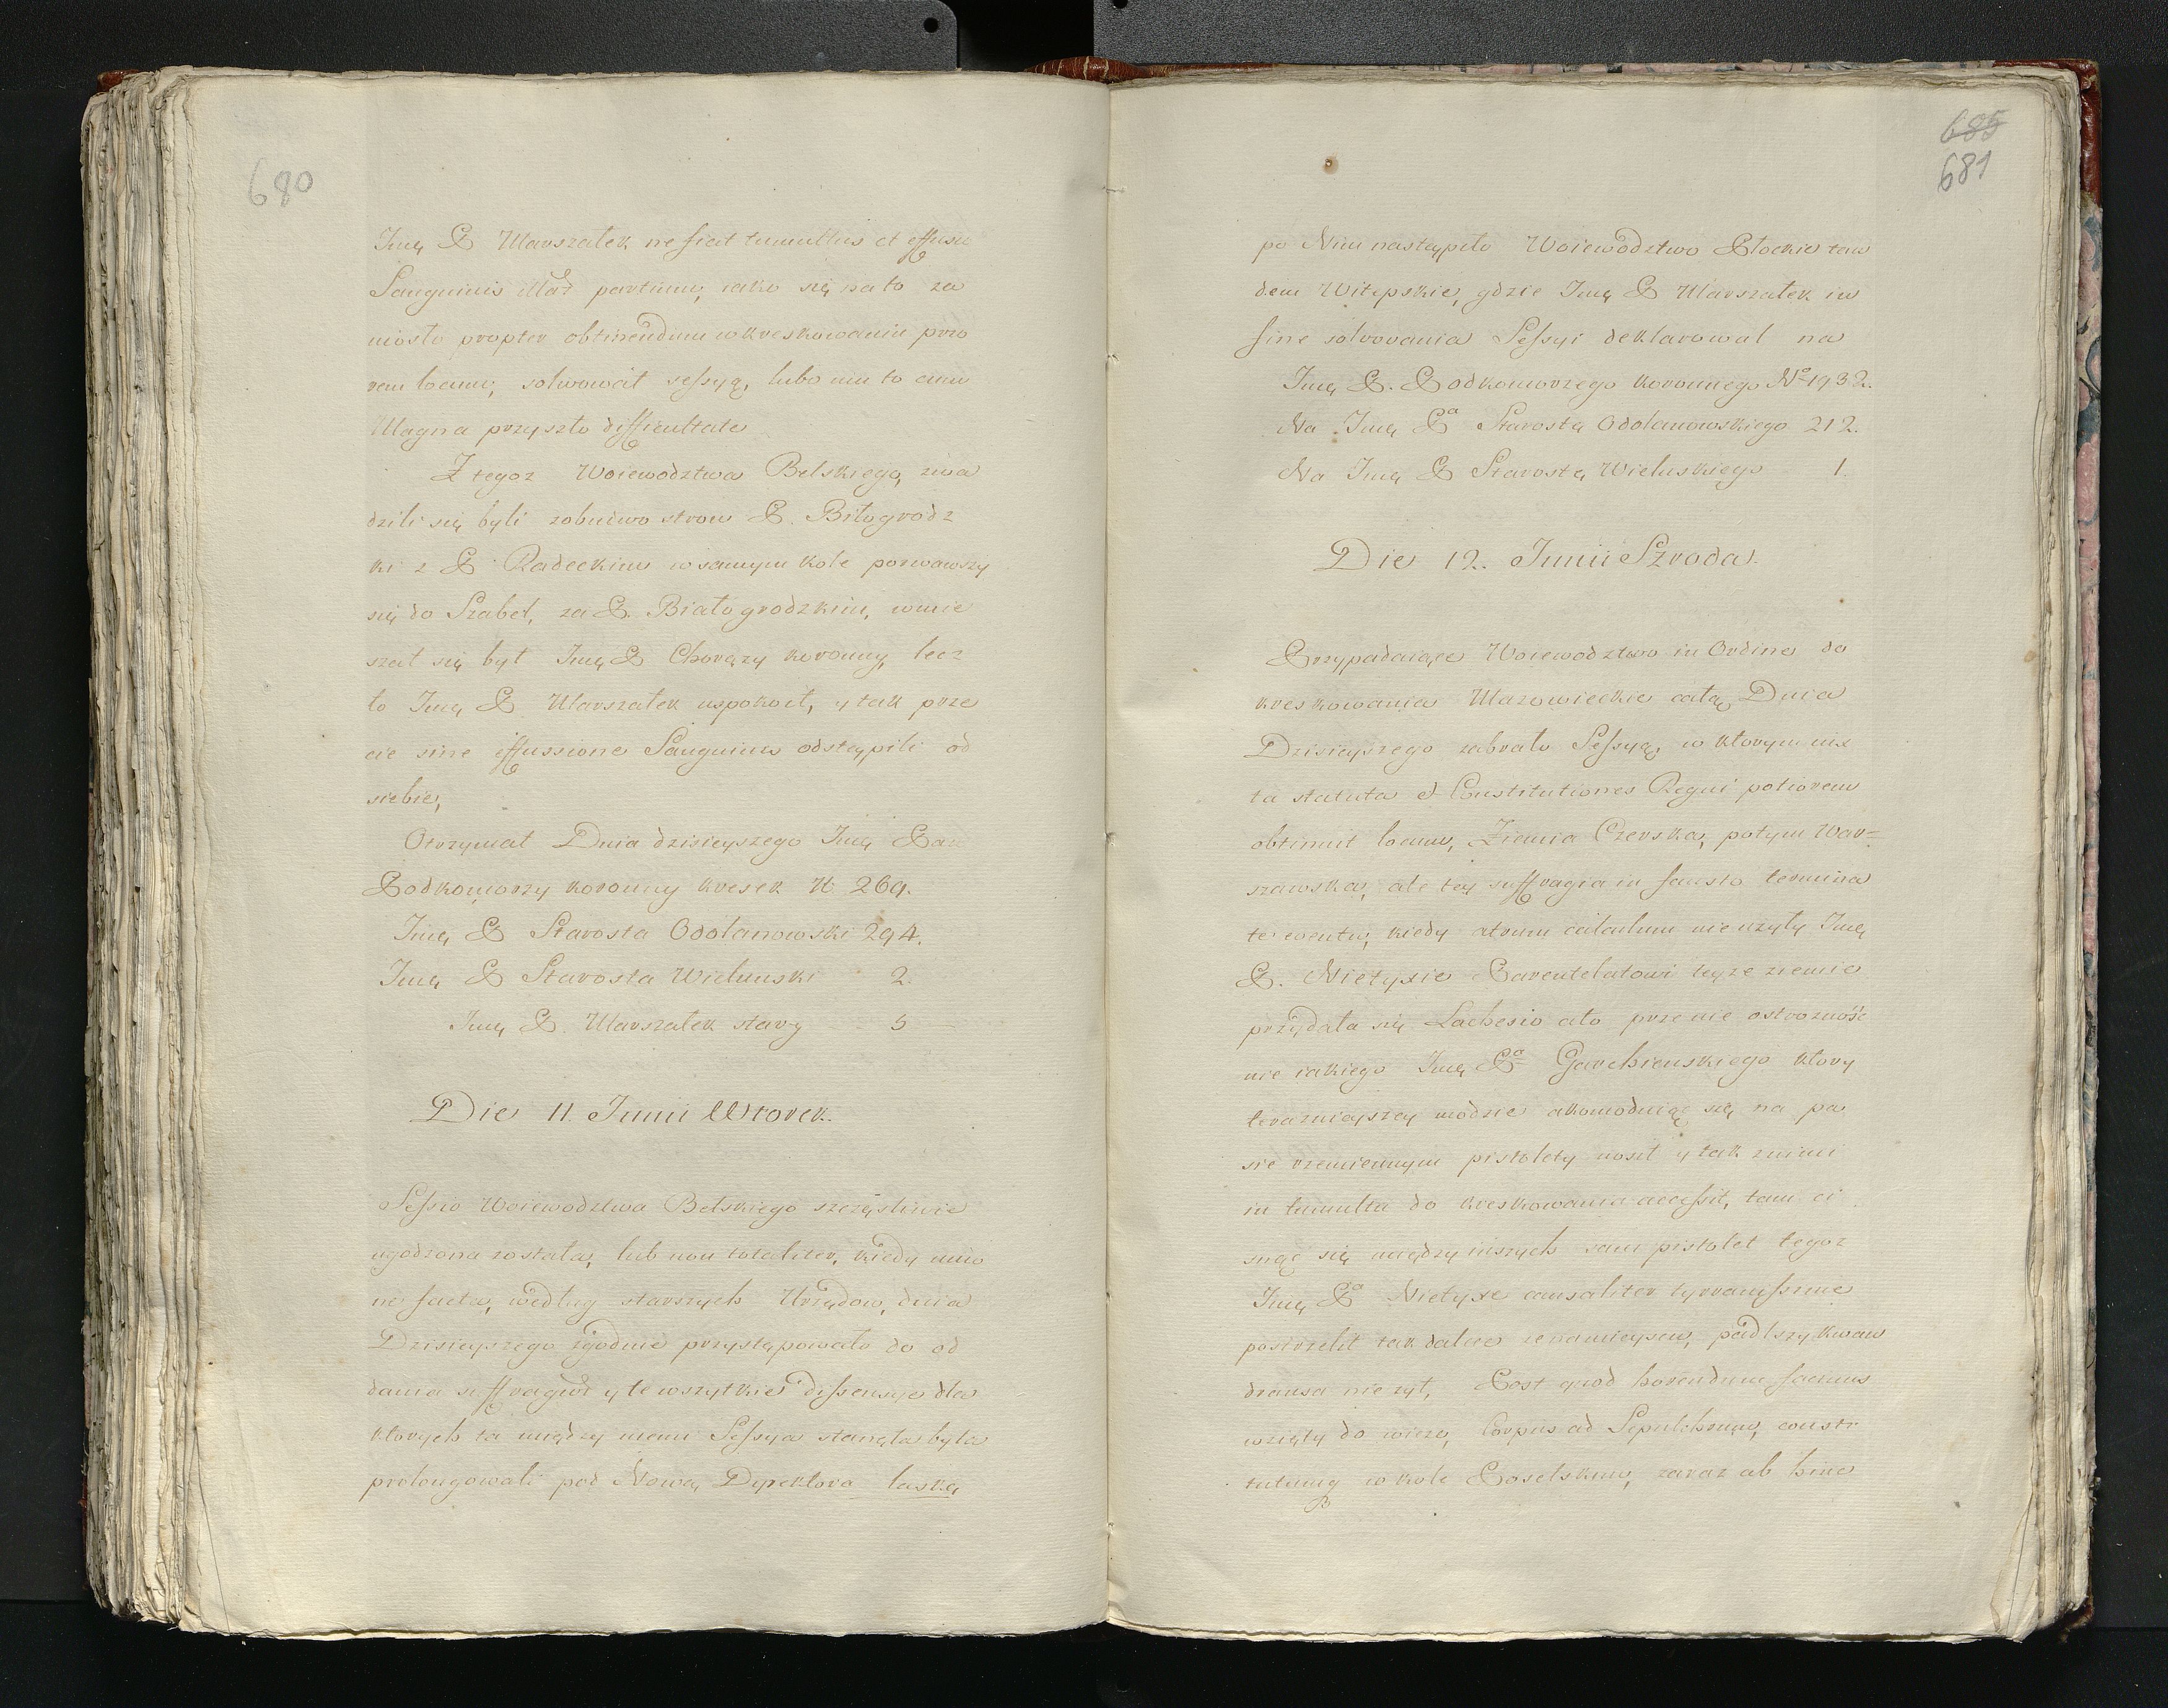 680
Jmę P Marszałek ne fiat tumultus et effusio
Sanguinis illar partium, iako się na to za
niosło propter obtinendum w kreskowaniu prio
rem locum, solwował sessyą, lubo mu to cum
Magna przyszło difficultate
Z tegoz Woiewodztwa Belskiego, zwa
dzili się byli z obudwo stron P. Biłogrodz
ki z P Radeckim w samym kole porwawszy
się do Szabel, za P. Białogrodzkim, wmie
szał się był Jmę P Chorązy koronny, lecz
to Jmę P Marszałek uspokoił, y tak prze
cie sine effussione Sanguinis odstąpili od
siebie,
Otrzymał Dnia dzisieyszego Jmę Pan
Podkomorzy koronny kresek N 269.
Jmę P Starosta Odolanowski 294.
Jmę P Starosta Wielunski 2.
Jmę P. Marszałek stary 5
Die 11. Junii Wtorek.
Sessio Woiewodztwa Bełskiego szczęśliwie
ugodzona została, lub non totaliter, kiedy unio
ne facta, według starszych Urzędow, dnia
Dzisieyszego zgodnie przystępowało do od
dania suffragiow y te wszytkie dissensye dla
ktorych ta między niemi Sessya stanęła była
prolongowali pod Nową Dyrektora laskę
685
681
po Nim nastąpiło Woiewodztwo Płockie tan
dem Witepskie, gdzie Jmę P Marszałek in
fine solwowania Sessyi deklarował na
Jmę P. Podkomorzego koronnego No 1932.
Na Jmę Pa Starostę Odolanowskiego 212.
Na Jmę P Starostę Wieluskiego 1.
Die 12. Junii Szroda.
Przypadaiące Woiewodztwo in Ordine do
kreskowania Mazowieckie całą Dnia
Dzisieyszego zabrało Sessyą, w ktorym iux
ta statuta et Constitutiones Regni potiorem
obtinuit locum, Ziemia Czerska, potym War=
szawska, ale tey suffragia in fausto termina
te eventu, kiedy atrum calculum nieuzyty Jmę
P. Nietyxie Parentelatowi teyze ziemie
przydała się Lachesis ato prze nie ostroznośc
nie iakiego Jmę Pa Garchienskiego ktory
teraznieyszey modzie akomoduiąc się na pa
sie rzemiennym pistolety nosił y tak znimi
in tumultu do kreskowania accessit, tam ci
snąc się między inszych sam pistolet tegoz
Jmę Pa Nietyxe causaliter tyrranissime
postrzelił tak dalece ze na mieyscu, padłszy kwa
dransa nie zył, Post quod horendum facinus
wzięty do wieze, Corpus ad Sepulchrum, consti
tutumq w kole Poselskim, zaraz ab hinc